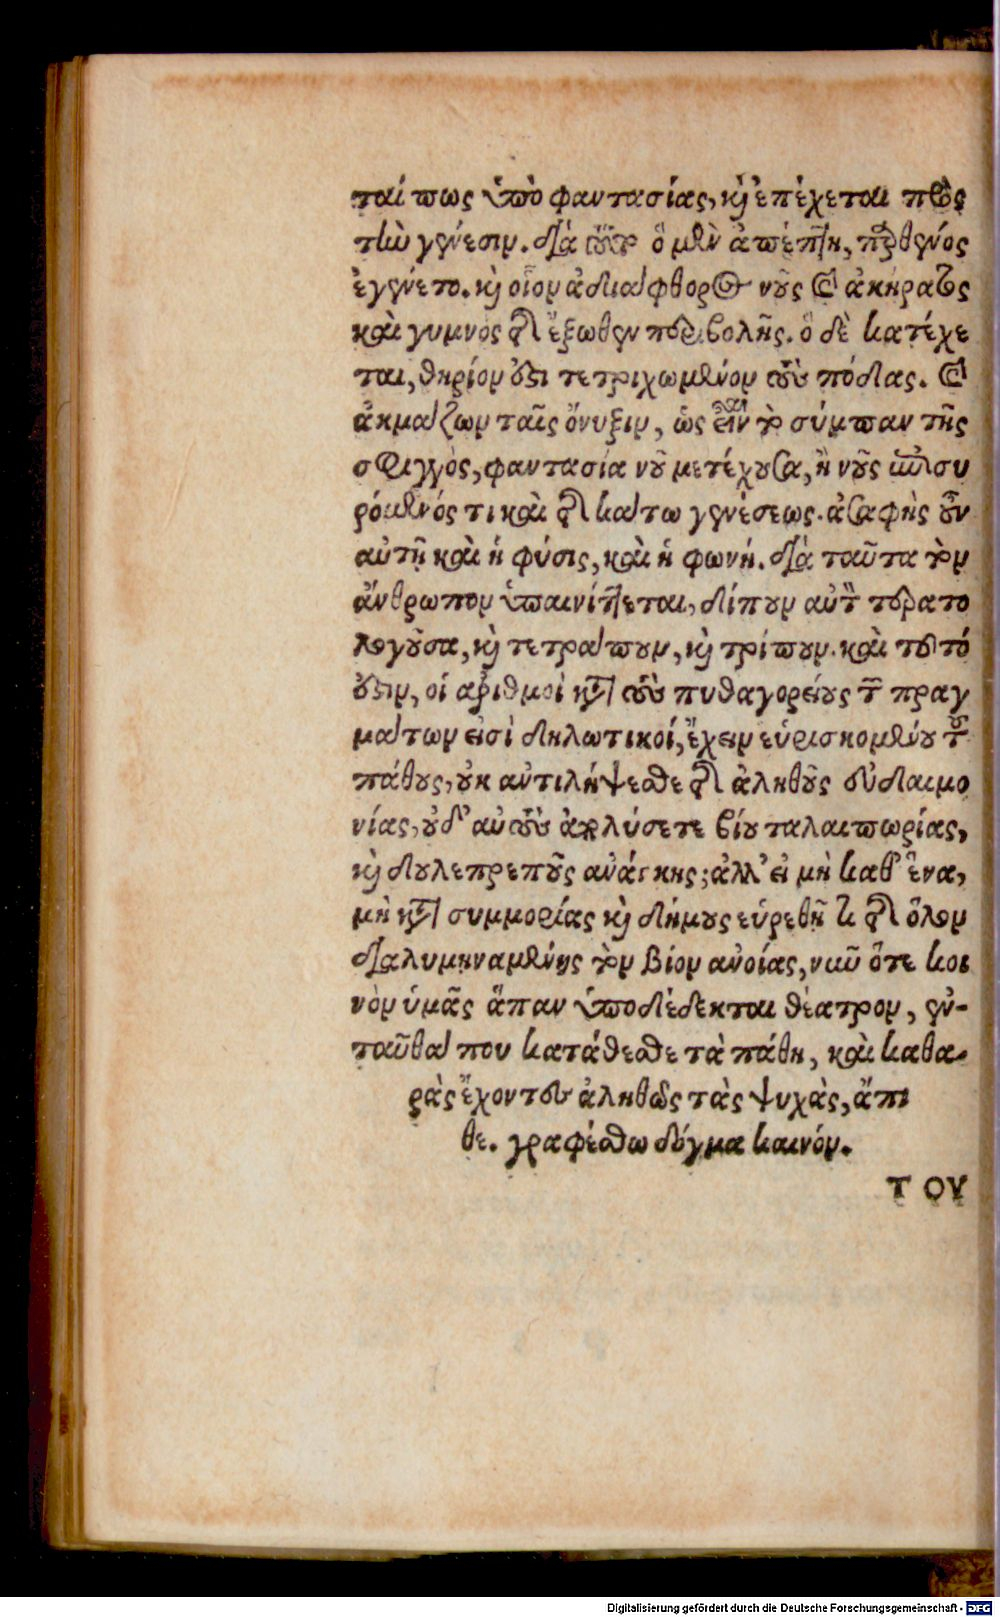 ταί πως ὑπὸ φαντασίας, καὶ ἐπέχεται πρὸς
τὴν γένεσιν. διὰ τοῦτο ὃ μὲν ἀπέπτη, παρθένος
ἐγένετο. καὶ οἷον ἀδιάφθορος νοῦς καὶ ἀκήρατος
καὶ γυμνὸς τῆς ἔξωθεν περιβολῆς. ὃ δὲ κατέχε
ται, θηρίον ἐστι τετριχωμένον τοὺς πόδας. καὶ
ἀκμάζων ταῖς ὄνυξιν, ὡς εἶναι τὸ σύμπαν τῆς
σφιγγὸς, φαντασία νοῦ μετέχουσα, ἢ νοῦς συ
ρόμενός τι καὶ τῆς κάτω γενέσεως. ἀσαφὴς οὖν
αὐτῆ καὶ ἡ φύσις, καὶ ἡ φωνή. διὰ ταῦτα τὸν
ἄνθρωπον ὑπαινίττεται, δίπουν αὐτὸν τερατο
λογοῦσα, καὶ τετράπουν, καὶ τρίπουν. καὶ τοῦτό
ἐστιν, οἱ ἀριθμοὶ κατὰ τοὺς πυθαγορείους τῶν πραγ
μάτων εἰσὶ δηλωτικοί, ἔχειν εὑρισκομένου τοῦ
πάθους, οὐκ ἀντιλήψεσθε τῆς ἀληθοῦς εὐδαιμο
νίας, οὐδ' αὖ τοῦ ἀπολύσετε βίου ταλαιπωρίας,
καὶ δουλεπρεποῦς ἀνάγκης; ἀλλ' εἰ μὴ καθ' ἕνα,
μὴ κατὰ συμμορίας καὶ δήμους εὑρεθῆτε τῆς ὅλον
διαλυμηναμένης τὸν βίον ἀνοίας, νῦν ὅτε κοι
νὸν ὑμᾶς ἅπαν ὑποδέδεκται θέατρον, ἐν-
ταῦθά που κατάθεσθε τὰ πάθη, καὶ καθα-
ρὰς ἔχοντες ἀληθῶς τὰς ψυχὰς, ἄπι
θε. γραφέσθω δόγμα καινόν.
ΤΟΥ
Digitalisierung gefördert durch die Deutsche Forschungsgemeinschaft - DFG